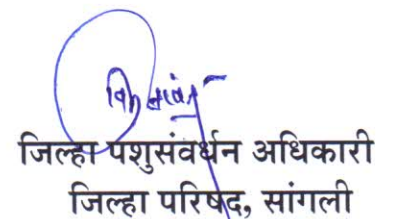 जिल्हा पशुसंवर्धन अधिकारी
जिल्हा परिषद, सांगली